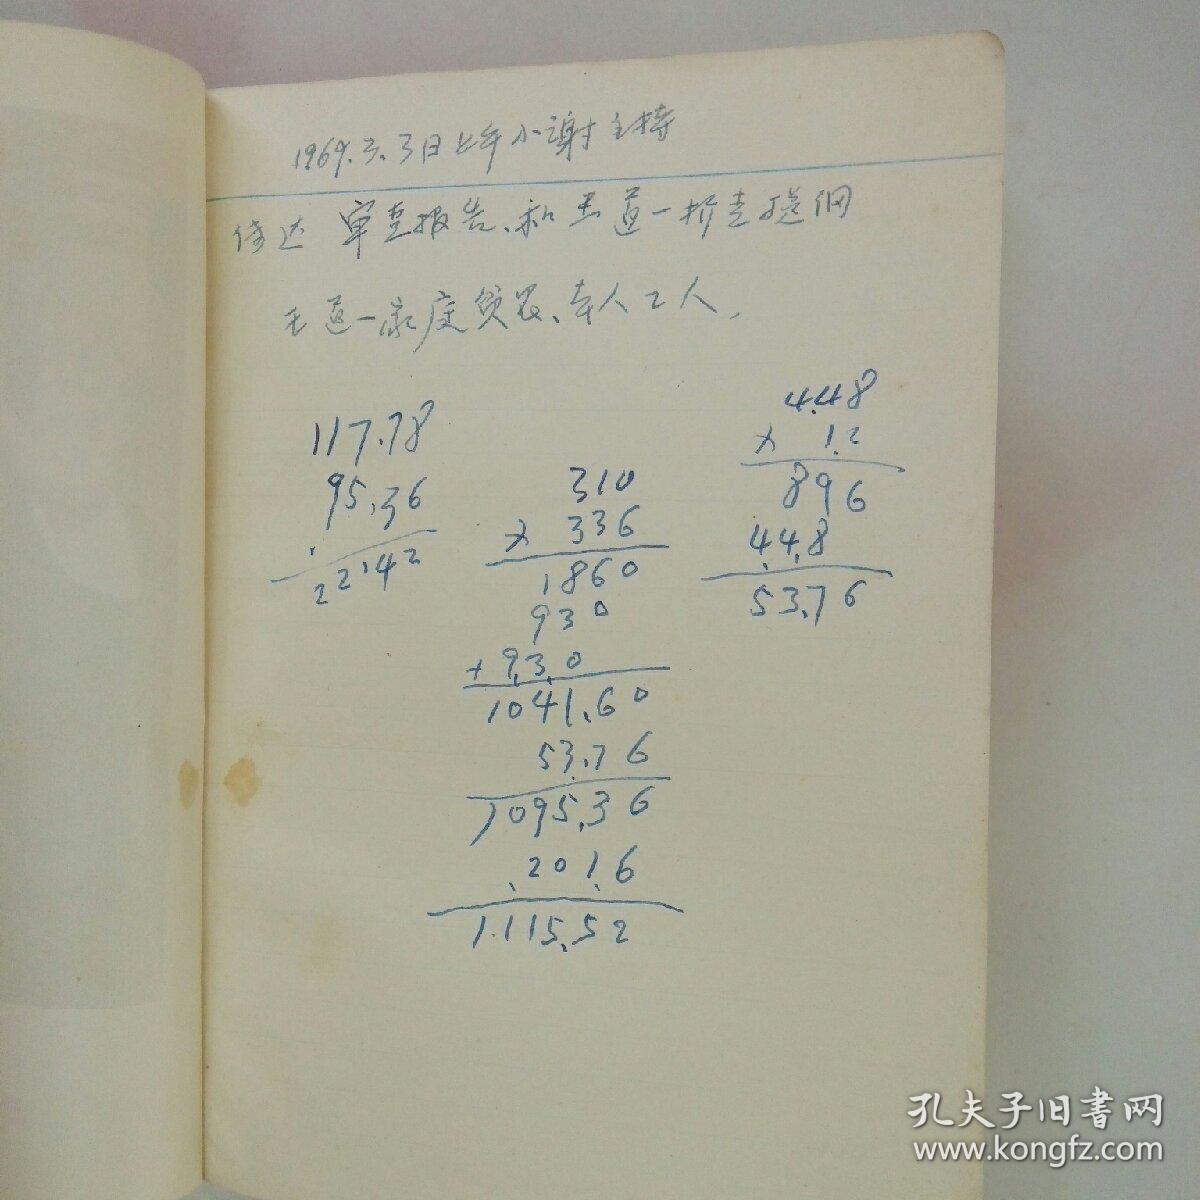 1969.3.3日上午小谢主持
传达 审查报告、和王道一折走提纲
王道一家庭贫农、本人工人,
117.78
95.36
22.42
310
× 336
1860
930
+ 930
1041.60
53.76
1095.36
2016
1.115.52
4.48
× 12
896
448
53.76
孔夫子旧書网
www.kongfz.com